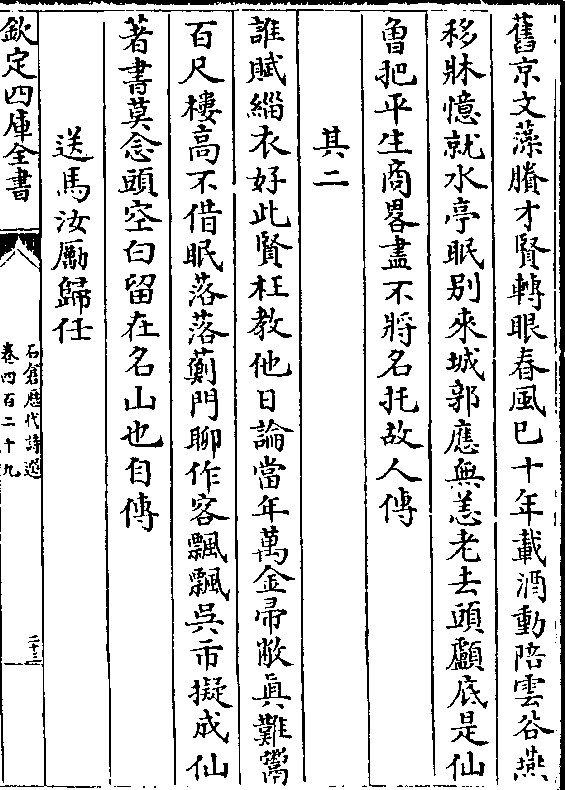 舊京文藻賸才賢轉眼春風已十年載酒動陪雲谷燕
移牀憶就水亭眠别來城郭應無恙老去頭顱底是仙
曾把平生商畧盡不將名托故人傳
其二
誰賦緇衣好此賢枉教他日論當年萬金帚敝真難鬻
百尺樓高不借眠落落薊門聊作客飄飄吳市擬成仙
著書莫念頭空白留在名山也自傳
送馬汝勵歸任
欽定四庫全書
石倉歴代詩選
卷四百二十九
二十三